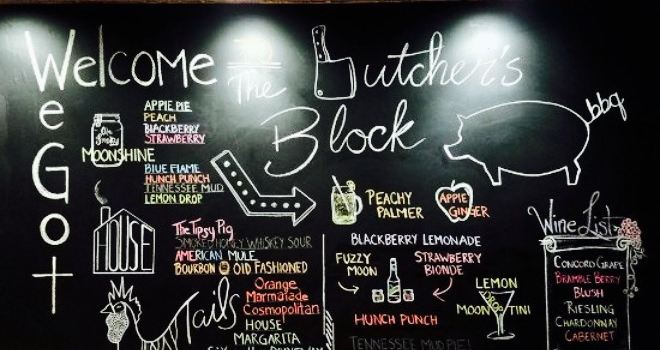 Welcome to
The Butcher's
Block
We Got
bbq
Ole
Smoky
MOONSHINE
APPIE PIE
PEACH
BLACKBERRY
STRAWBERRY
BLUE FLAME
HUNCH PUNCH
TENNESSEE MUD
LEMON DROP
HOUSE
The Tipsy Pig
SMOKED HONEY WHISKEY SOUR
AMERICAN MULE
BOURBON OLD FASHIONED
Tails
Orange
Marmalade
Cosmopolitan
HOUSE
MARGARITA
PEACHY
PALMER
APPIE
GINGER
BLACKBERRY LEMONADE
FUZZY
MOON
STRAWBERRY
BLONDE
LEMON
DROP
MOON TINI
HUNCH PUNCH
TENNESSEE MUD PIE!
Wine List
CONCORD GRAPE
BRAMBLE BERRY
BLUSH
RIESLING
CHARDONNAY
CABERNET